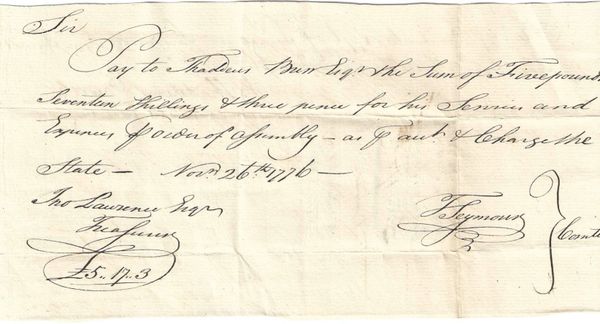 Sir
Pay to Thaddeus Burr Esqr the Sum of Five pounds
Seventeen Shillings & three pence for his Service and
Expences P order of Assembly – as P act & Charge the
State – Novr 26th 1776 –
Jno Lawrence Esqr
Treasurer
T Seymour
Comtee
£5.. 17.. 3